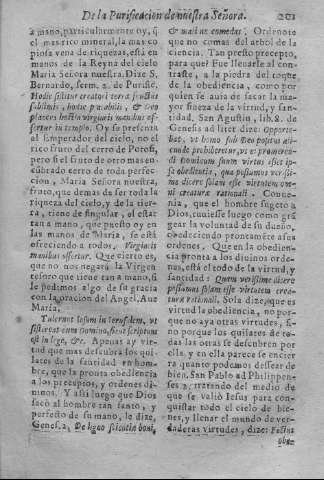 De la Purificacion de nuestra Señora. 201
a mano, particularmente oy, q̃
el mas rico mineral, la mas co
piosa vena de riquezas, està en
manos de la Reyna del cielo
Maria Señora nuestra. Dize S.
Bernardo, serm. 2. de Purific.
Hodie sistitur creatori terræ fructus
sublimis, hodie placabilis, & Deo
placens hostia virgineis manibus of-
fertur in templo. Oy se presenta
al Emperador del cielo, no el
rico fruto del cerro de Potosi,
pero si el fruto de otro mas en-
cũbrado cerro de toda perfec-
cion, Maria Señora nuestra,
fruto, que demas de ser toda la
riqueza del cielo, y de la tier-
ra, tiene de singular, el estar
tan a mano, que puesto oy en
las manos de Maria, se està
ofreciendo a todos. Virgineis
manibus offertur. Que cierto es,
que no nos negarà la Virgen
tesoro que tiene tan a mano, si
le pedimos algo de su gracia
con la oracion del Angel, Aue
Maria.
Tulerunt Iesum in Ierusalem, vt
sisterent eum Domino, sicut scriptum
est in lege, &c. Apenas ay vir-
tud que mas descubra los qui-
lates de la santidad en hom-
bre, que la pronta obediencia
a los preceptos, y ordenes di-
uinos. Y assi luego que Dios
sacò al hombre tan santo, y
perfecto de su mano, le dize,
Genes. 2. De ligno scientiæ boni,
& mali ne comedas. Ordenote
que no comas del arbol de la
ciencia. Tan presto precepto,
para que? Fue lleuarle al con-
traste, a la piedra del toque
de la obediencia, como por
quien se auia de sacar la ma-
yor fineza de la virtud, y san-
tidad. San Agustin, lib. 8. de
Genesis ad liter dize: Oporte-
bat, vt homo sub Deo positus ali-
cunde prohiberetur, vt ei promeren-
di Dominum suum virtus esset ip-
sa obedientia, qua possumus verissi-
me dicere solam esse virtutem om-
ni creaturæ rationali. Conue-
nia, que el hombre sugeto a
Dios, tuuiesse luego como grã
gear la voluntad de su dueño,
obedeciendo prontamẽte a sus
ordenes. Que en la obedien-
cia pronta a los diuinos orde-
nes, està el todo de la virtud, y
santidad: Quam verissime dicere
possumus solam esse virtutem crea-
turæ rationali. Sola dize, que es
virtud la obediencia, no por-
que no aya otras virtudes, si-
no porque los quilates de to-
das las otras se descubren por
ella, y en ella parece se encier
ra quanto podemos dessear de
bien. San Pablo ad Philippen-
ses 2. tratando del medio de
que se valiò Iesus para con-
quistar todo el cielo de bie-
nes, y llenar el mundo de ver-
daderas virtudes, dize: Factus
obe-